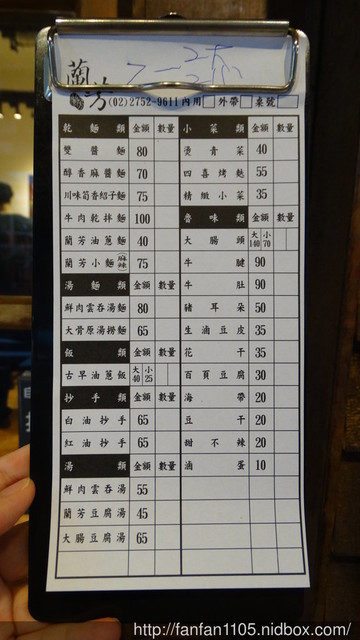 蘭芳
(02)2752-9611 內用□ 外帶□ 桌號
乾麵類 金額 數量
雙醬麵 80
醇香麻醬麵 70
川味筍香紹子麵 75
牛肉乾拌麵 100
蘭芳油蔥麵 40
蘭芳小麵 麻辣 75
湯麵類 金額 數量
鮮肉雲吞湯麵 80
大骨原湯撈麵 65
飯類 金額 數量
古早油蔥飯 大40 小25
抄手類 金額 數量
白油抄手 65
紅油抄手 65
湯類 金額 數量
鮮肉雲吞湯 55
蘭芳豆腐湯 45
大腸豆腐湯 65
小菜類 金額 數量
燙青菜 40
四喜烤麩 55
精緻小菜 35
滷味類 金額 數量
大腸頭 大140 小70
牛腱 90
牛肚 90
豬耳朵 50
生滷豆皮 35
花干 35
百頁豆腐 30
海帶 20
豆干 20
甜不辣 20
滷蛋 10
http://fanfan1105.nidbox.com/